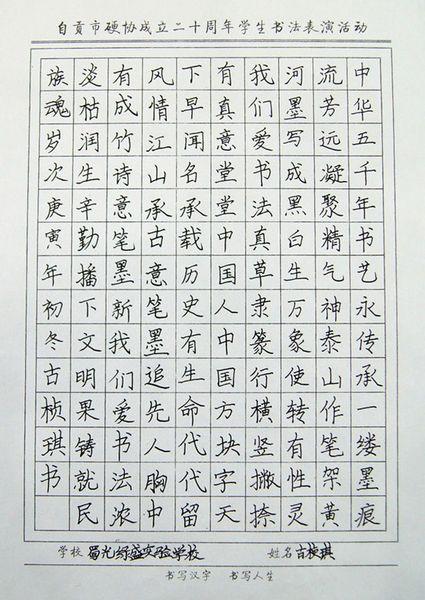 自贡市硬协成立二十周年学生书法表演活动
中华五千年书艺永传承一缕墨痕
流芳远凝聚精气神泰山作笔架黄
河墨写成黑白生万象使转有性灵
我们爱书法真草隶篆行横竖撇捺
有真意堂堂中国人中国方块字天
下早闻名承载历史有生命代代留
风情江山承古意笔墨追先人胸中
有成竹诗意笔墨新我们爱书法浓
淡枯润生辛勤播下文明果铸就民
族魂岁次庚寅年初冬古桢琪书
学校 蜀光绿盛实验学校 姓名 古桢琪
书写汉字 书写人生